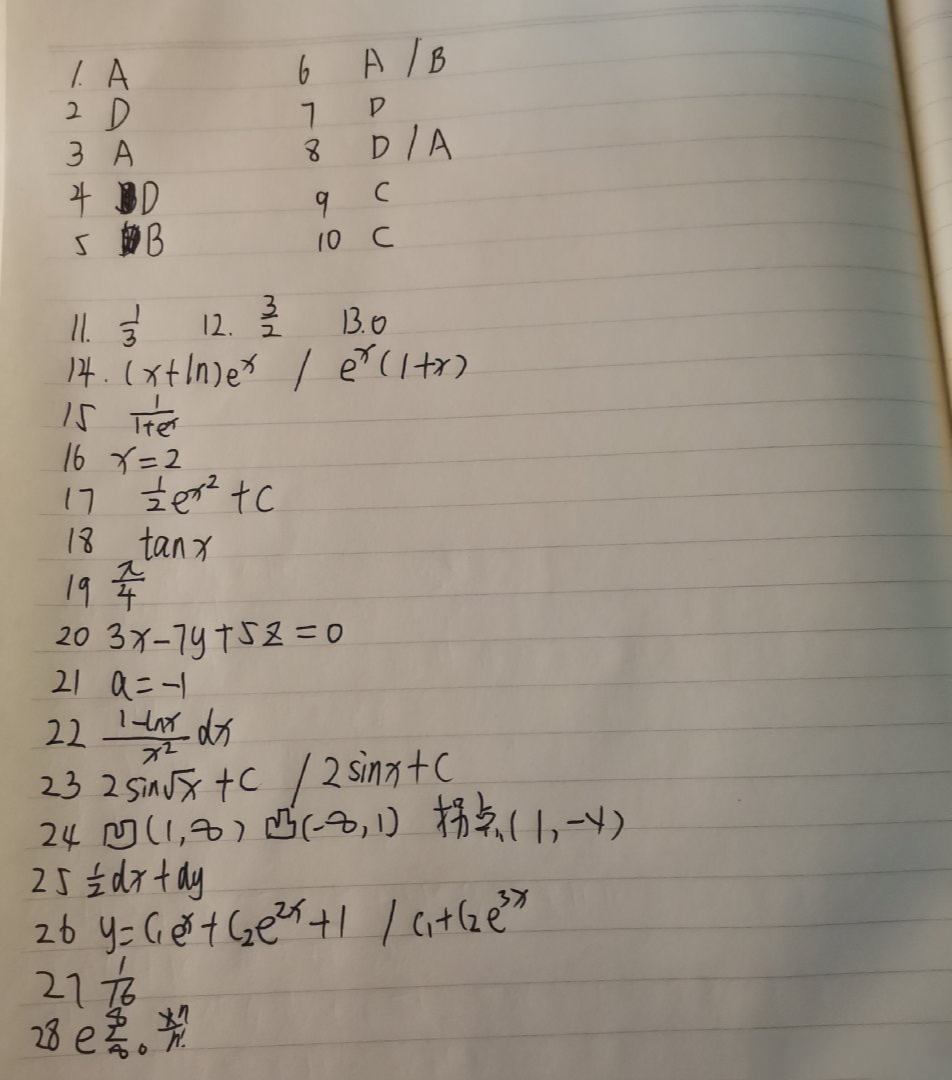 1. A 6 A / B
2 D 7 D
3 A 8 D / A
4 D 9 C
5 B 10 C
11. 1/3 12. 3/2 13.0
14. (x+ln)e^x / e^x(1+x)
15 1/(1+e^x)
16 x=2
17 1/2 e^x² +C
18 tanx
19 π/4
20 3x-7y+5z=0
21 a=-1
22 (1-lnx)/x² dx
23 2sin√x +C / 2sinx+C
24 凹(1,∞) 凸(-∞,1) 拐点(1,-4)
25 1/2 dx+dy
26 y=C₁e^x+C₂e^2x+1 / C₁+C₂e^3x
27 1/16
28 e x^n/n!